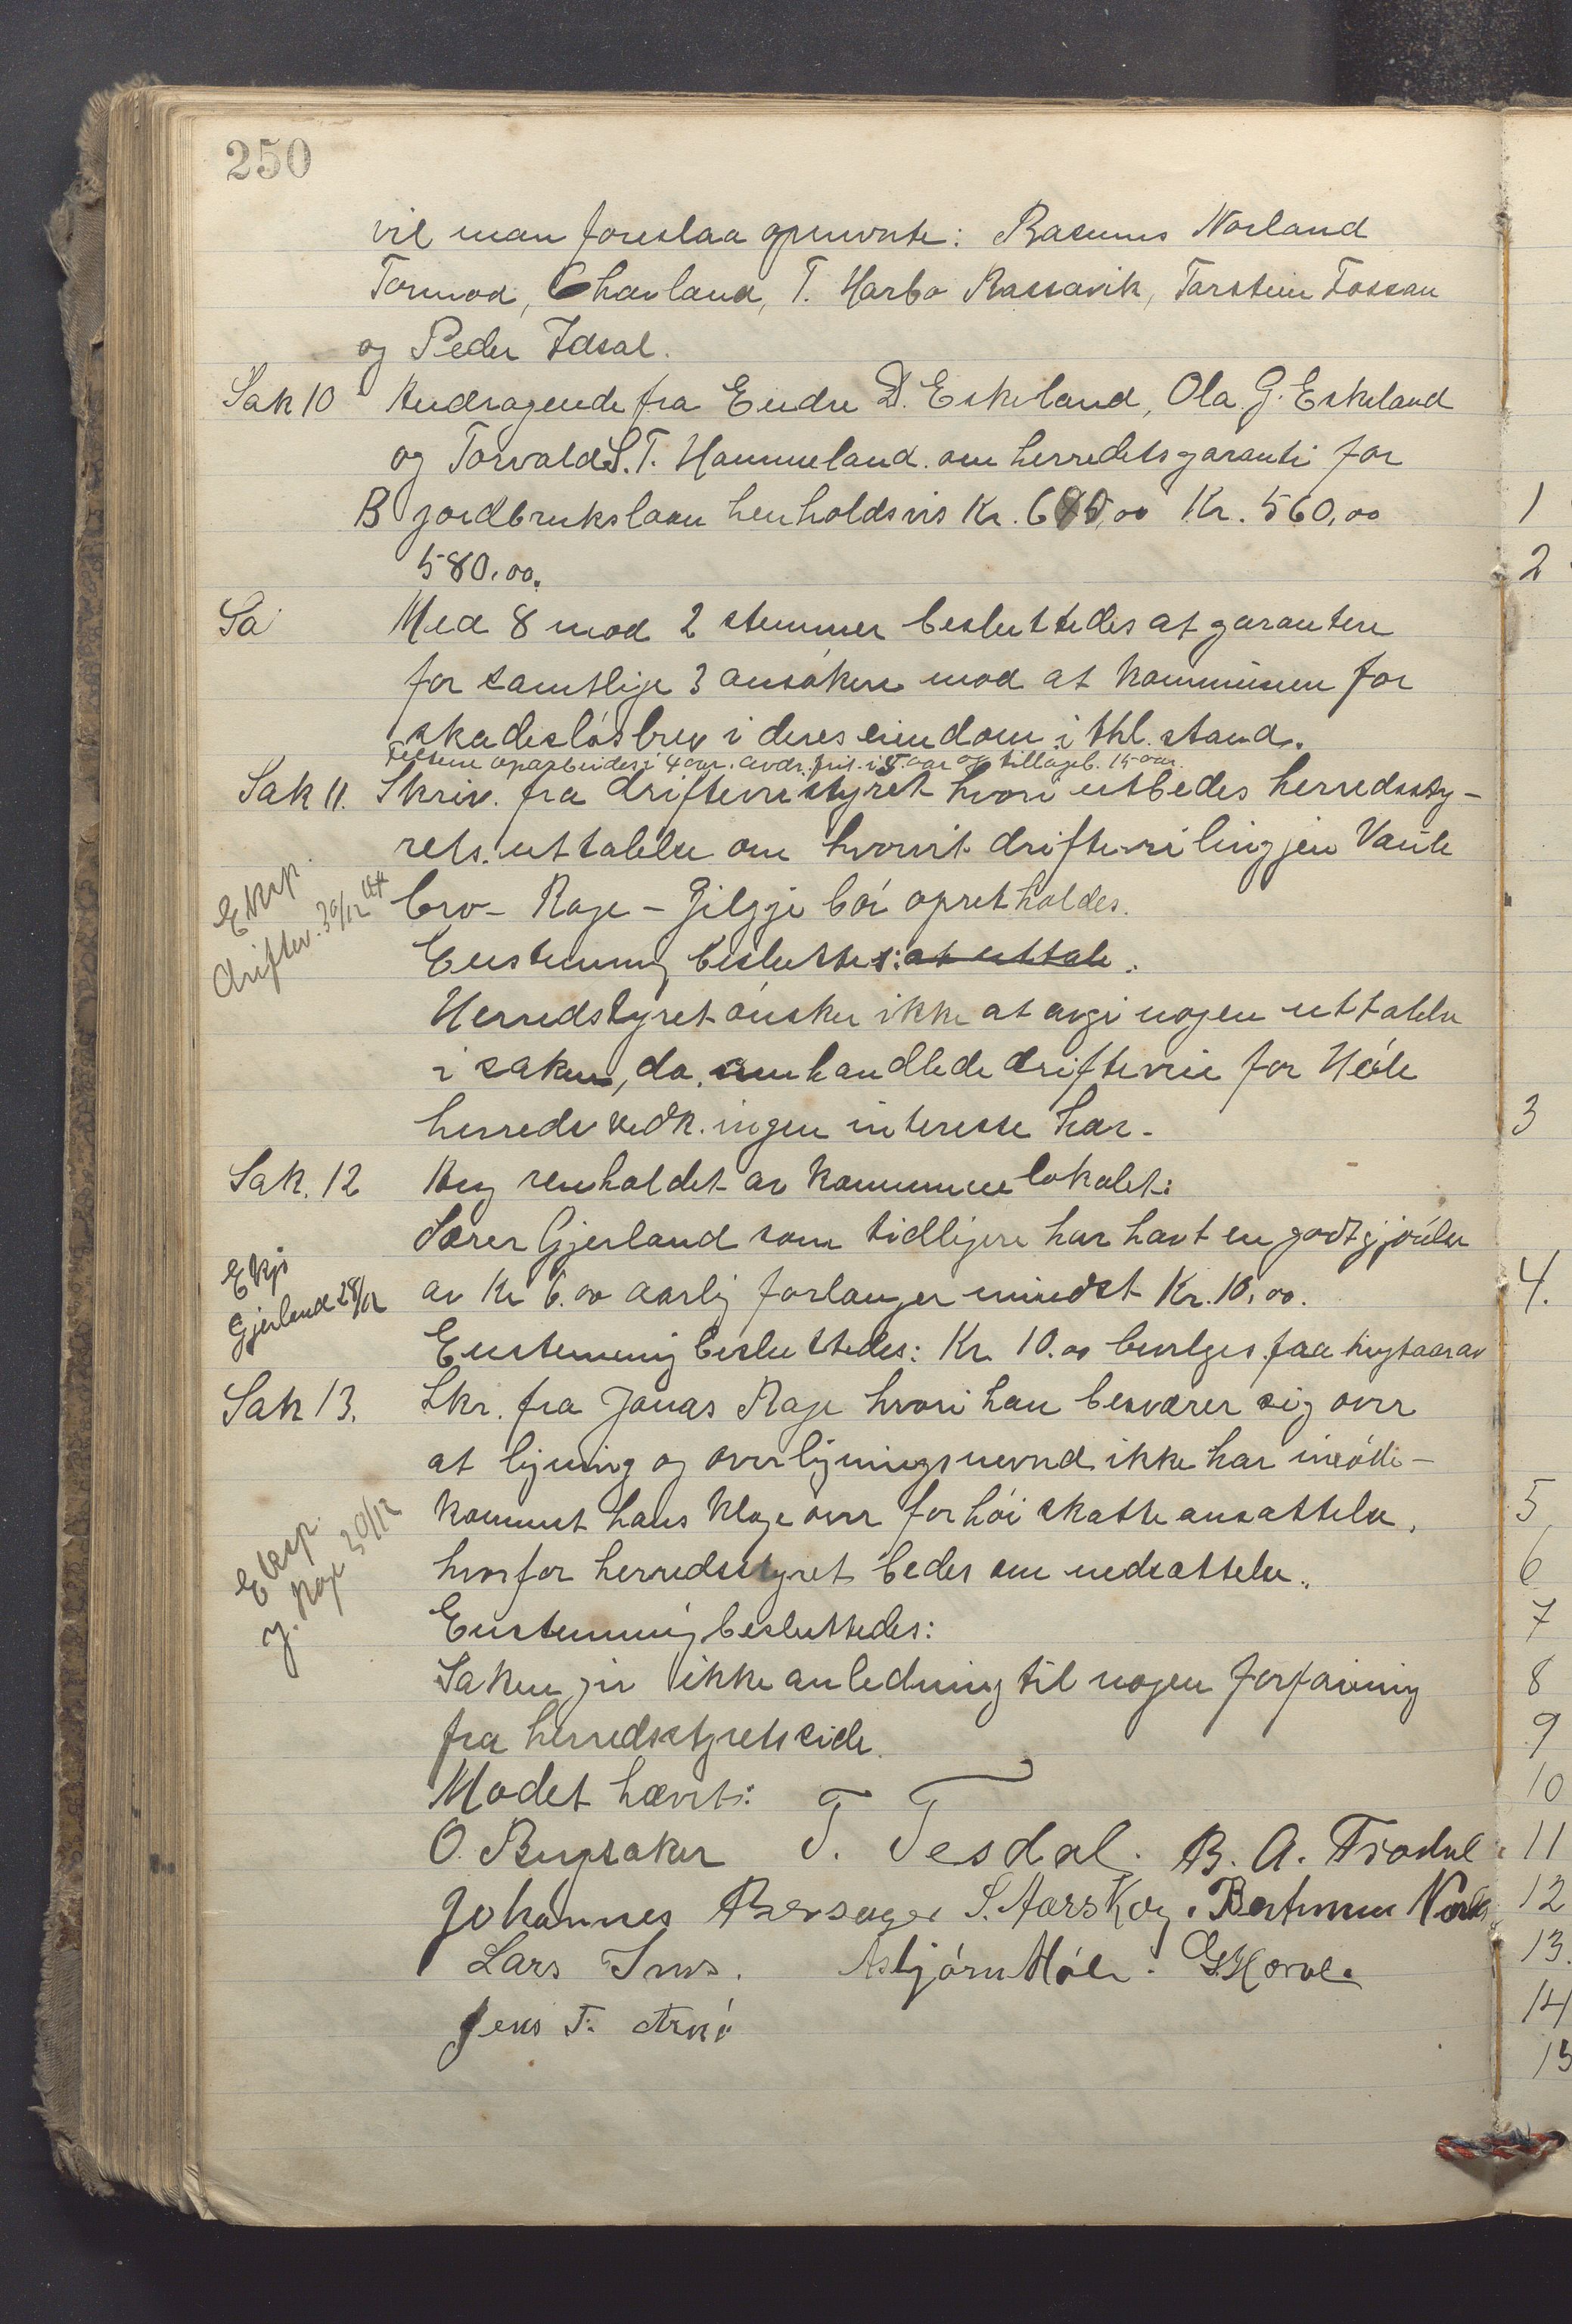 250
vil man foreslaa opnævnte: Rasmus Norland
Tormod, Chavland, T. Harbo Rassavik, Torstein Fossan
og Peder Idsal.
Sak 10 Andragende fra Endre D. Eskeland, Ola G. Eskeland
og Torvald S. T. Hammeland. om herredets garanti for
B jordbrukslaan henholdsvis Kr. 600,00 Kr. 560,00
580.00.
Sa Med 8 mod 2 stemmer besluttedes at garantere
for samtlige 3 ansökere mod at kommunen for
skadeslösbrev i deres eiendom i thl. stand.
oparbeides i 4 aar. avdr. frit. i 5 aar og tilbageb. 15 aar.
Sak 11. Skriv. fra drifteveistyret hvori utbedes herredssty-
rets. uttalelse om hvorvit driftevei lingjen Vaule
bro - Rage - Gilgje bör opretholdes.
Eksp.
driftev. 30/12
Enstemmig besluttes: at uttale:
Herredstyret önsker ikke at avgi nogen uttalelse
i saken, da omhandlede driftevei for Höle
herreds vedk. ingen interesse har.
Sak. 12 Ang renholdet av kommunelokalet:
Sören Gjerland som tidligere har havt en godtgjörelse
av Kr 6.00 aarlig forlanger mindst Kr. 10,00.
Ekp
Gjerland 28/12
Enstemmig besluttedes: Kr. 10.00 bevilges fra nytaar av
Sak 13. Skr. fra Jonas Rage hvori han besværer sig over
at ligning og overligningsnevnd ikke har imöte-
kommet hans klage over for höi skatteansættelse,
hvorfor herredsstyret bedes om nedsættelse.
Eksp.
J. Rage 30/12
Enstemmig besluttedes:
Saken gir ikke anledning til nogen forföining
fra herredsstyrets side.
Mödet hævet:
O. Bugsaker T. Tesdal. B. A. Frodal
Johannes Bersagel S. Aarskog. Bertinius
Lars Ims. Asbjörn Höle.
Jens T.
1
2
3
4.
5
6
7
8
9
10
11
12
13.
14
15